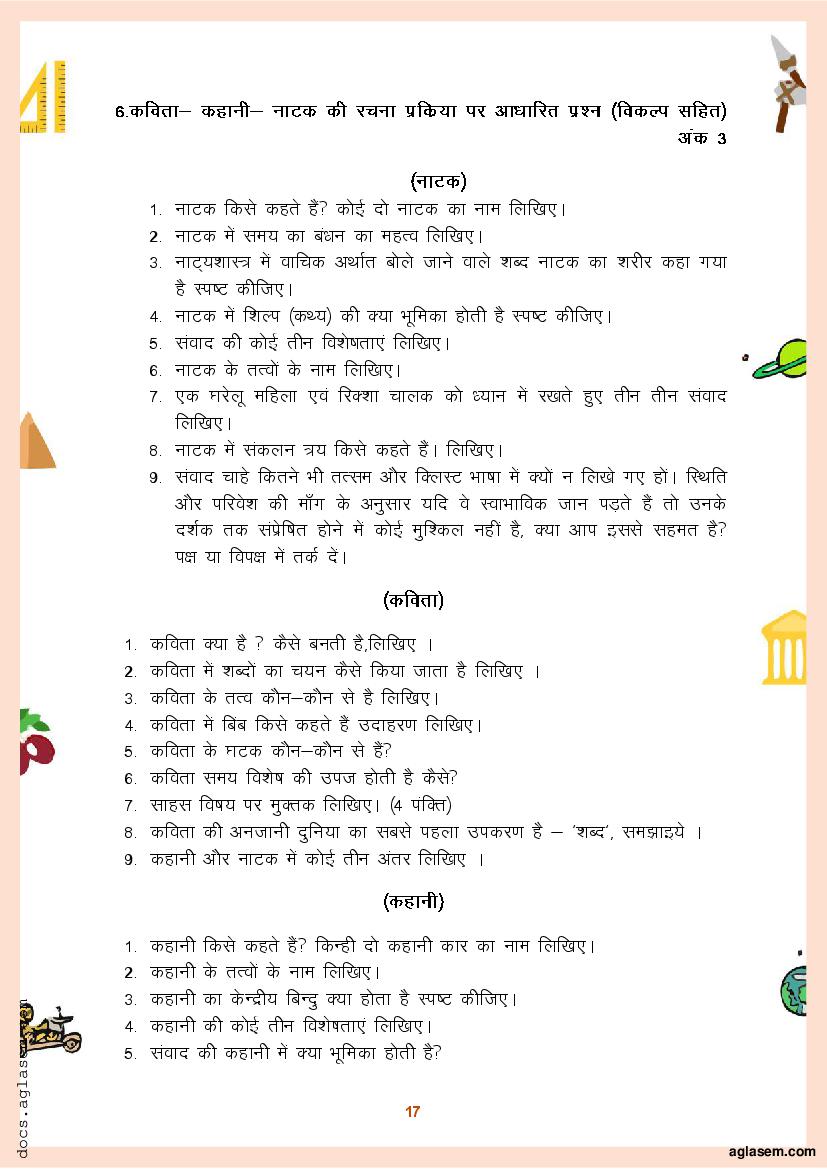 6.कविता– कहानी– नाटक की रचना प्रकिया पर आधारित प्रश्न (विकल्प सहित)
अंक 3
(नाटक)
1. नाटक किसे कहते हैं? कोई दो नाटक का नाम लिखिए।
2. नाटक में समय का बंधन का महत्व लिखिए।
3. नाट्यशास्त्र में वाचिक अर्थात बोले जाने वाले शब्द नाटक का शरीर कहा गया
है स्पष्ट कीजिए।
4. नाटक में शिल्प (कथ्य) की क्या भूमिका होती है स्पष्ट कीजिए।
5. संवाद की कोई तीन विशेषताएं लिखिए।
6. नाटक के तत्वों के नाम लिखिए।
7. एक घरेलू महिला एवं रिक्शा चालक को ध्यान में रखते हुए तीन तीन संवाद
लिखिए।
8. नाटक में संकलन त्रय किसे कहते हैं। लिखिए।
9. संवाद चाहे कितने भी तत्सम और क्लिस्ट भाषा में क्यों न लिखे गए हों। स्थिति
और परिवेश की माँग के अनुसार यदि वे स्वाभाविक जान पड़ते हैं तो उनके
दर्शक तक संप्रेषित होने में कोई मुश्किल नहीं है, क्या आप इससे सहमत है?
पक्ष या विपक्ष में तर्क दें।
(कविता)
1. कविता क्या है ? कैसे बनती है,लिखिए ।
2. कविता में शब्दों का चयन कैसे किया जाता है लिखिए ।
3. कविता के तत्व कौन–कौन से है लिखिए।
4. कविता में बिंब किसे कहते हैं उदाहरण लिखिए।
5. कविता के घटक कौन–कौन से हैं?
6. कविता समय विशेष की उपज होती है कैसे?
7. साहस विषय पर मुक्तक लिखिए। (4 पंक्ति)
8. कविता की अनजानी दुनिया का सबसे पहला उपकरण है – 'शब्द', समझाइये ।
9. कहानी और नाटक में कोई तीन अंतर लिखिए ।
(कहानी)
1. कहानी किसे कहते हैं? किन्ही दो कहानी कार का नाम लिखिए।
2. कहानी के तत्वों के नाम लिखिए।
3. कहानी का केन्द्रीय बिन्दु क्या होता है स्पष्ट कीजिए।
4. कहानी की कोई तीन विशेषताएं लिखिए।
5. संवाद की कहानी में क्या भूमिका होती है?
17
docs.aglasem
aglasem.com